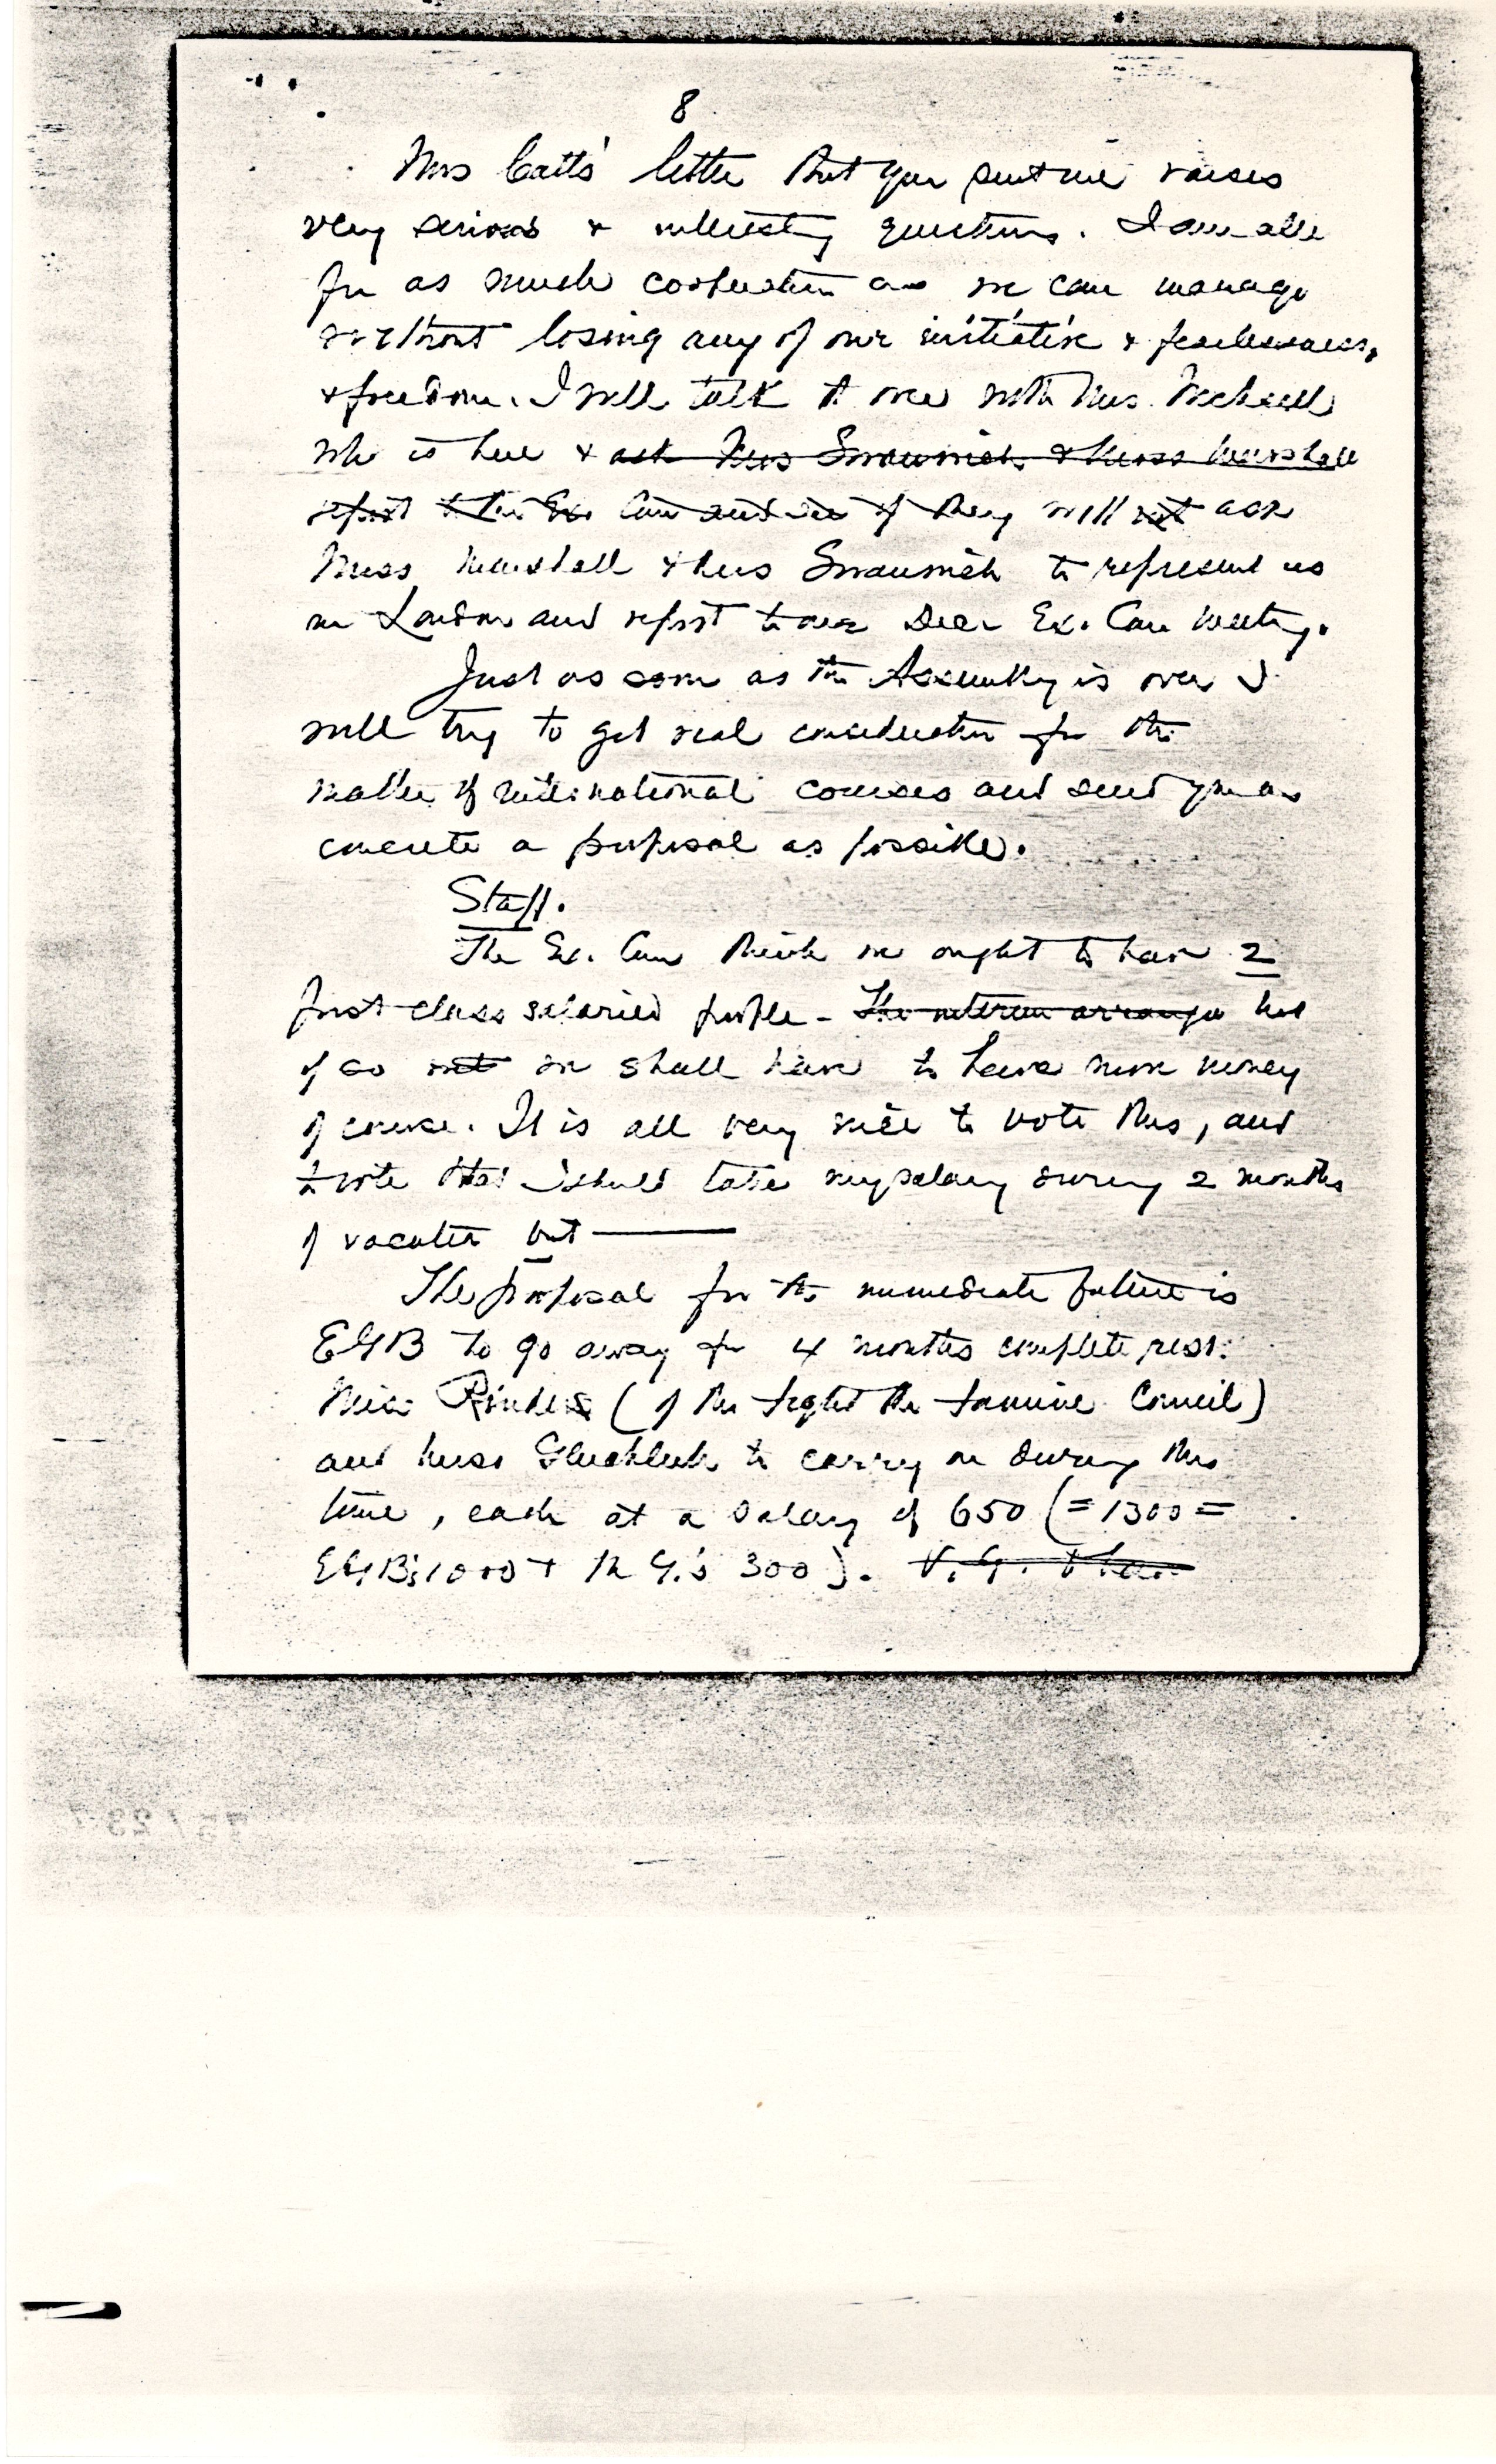 8
Mrs Catts' letter that you sent me raises
very serious & interesting questions. I am all
for as much cooperation as we can manage
without losing any of our initiative & fearlessness,
& freedom. I will talk it over with Mrs.
who is here & ask Mrs Swanwick & Miss Marshall
report to the Ex. Com and see if they will not ask
Miss Marshall & Mrs Swanwick to represent us
in London and report to our Dec. Ex. Com meeting.
Just as soon as the Assembly is over I
will try to get real consideration for the
matter of international courses and send you as
concrete a proposal as possible.
Staff.
The Ex. Com think we ought to have 2
first class salaried people - The interim arrange but
if so not we shall have to have more money
of course. It is all very nice to vote this, and
to vote that I should take my salary during 2 months
of vacation but
The proposal for the immediate future is
EGB to go away for 4 months complete rest.
Miss Rinder (of the Fight the Famine Council)
and Miss Glücklich to carry on during this
time, each at a salary of 650 (= 1300 =
EGB's 1000 + 300). V. G. than